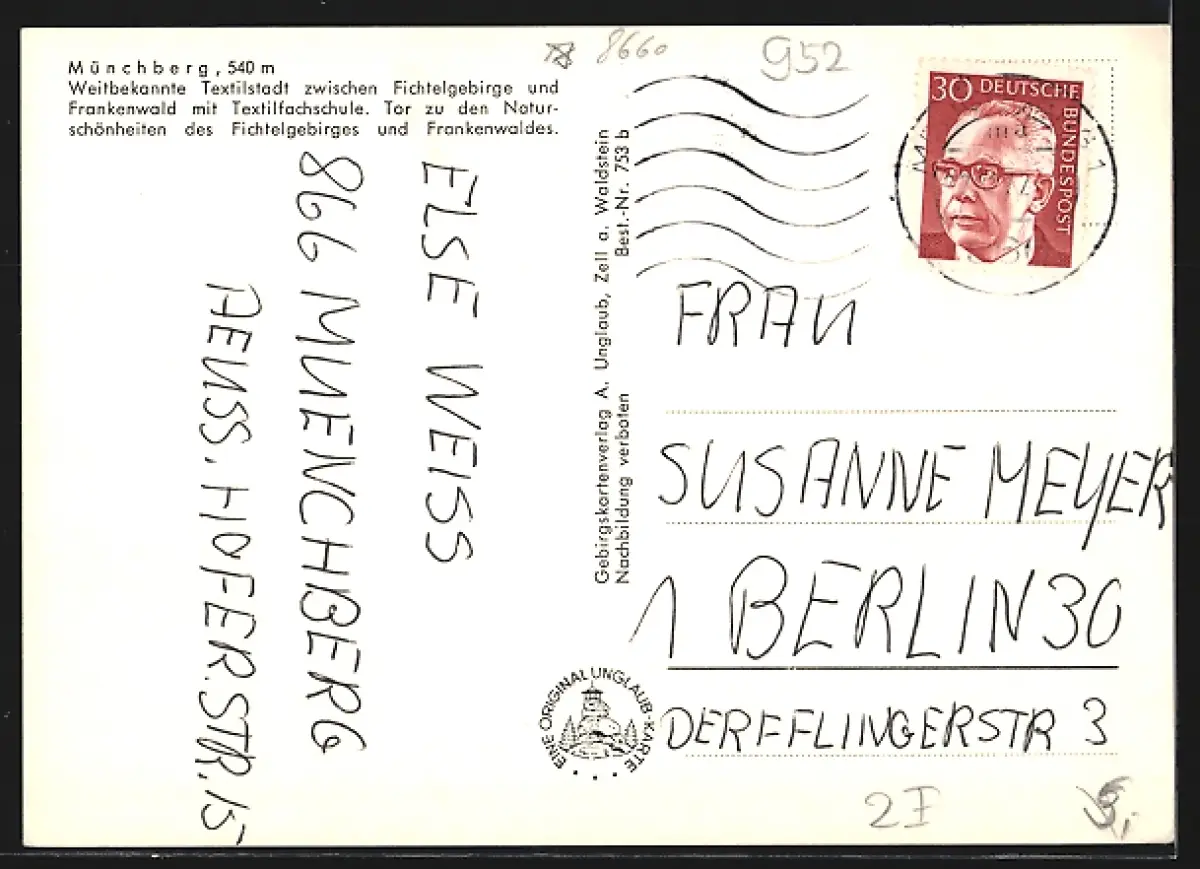 Münchberg, 540 m
Weitbekannte Textilstadt zwischen Fichtelgebirge und
Frankenwald mit Textilfachschule. Tor zu den Natur-
schönheiten des Fichtelgebirges und Frankenwaldes.
ELSE WEISS
866 MUENCHBERG
AEUSS. HOFER.STR. 15
Gebirgskartenverlag A. Unglaub, Zell a. Waldstein
Nachbildung verboten Best.-Nr. 753 b
8660
952
30 DEUTSCHE BUNDESPOST
FRAU
SUSANNE MEYER
1 BERLIN 30
DERFFLINGERSTR 3
EINE ORIGINAL UNGLAUB-KARTE
2I